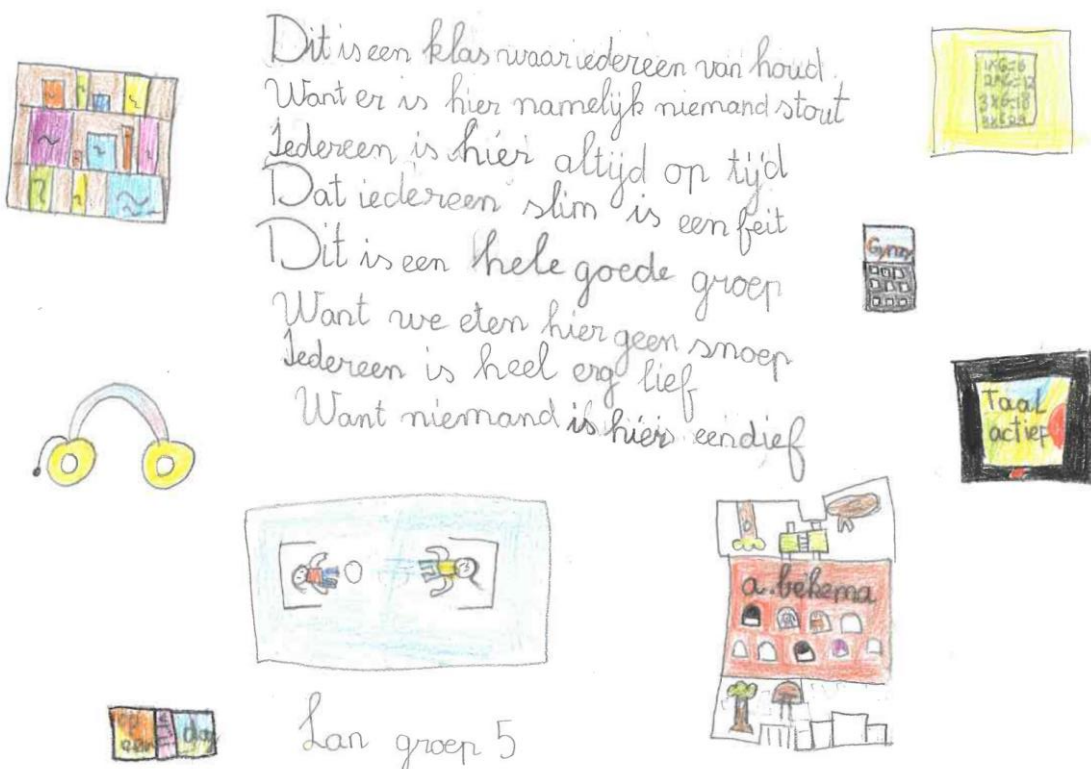 Dit is een klas waar iedereen van houd.
Want er is hier namelijk niemand stout
Iedereen is hier altijd op tijd
Dat iedereen slim is een feit
Dit is een hele goede groep
Want we eten hier geen snoep
Iedereen is heel erg lief
Want niemand is hier een dief
1x6=6
2x6=12
3x6=18
Gym
Taal
actief
a.bekema
op
een
dag
Lan groep 5